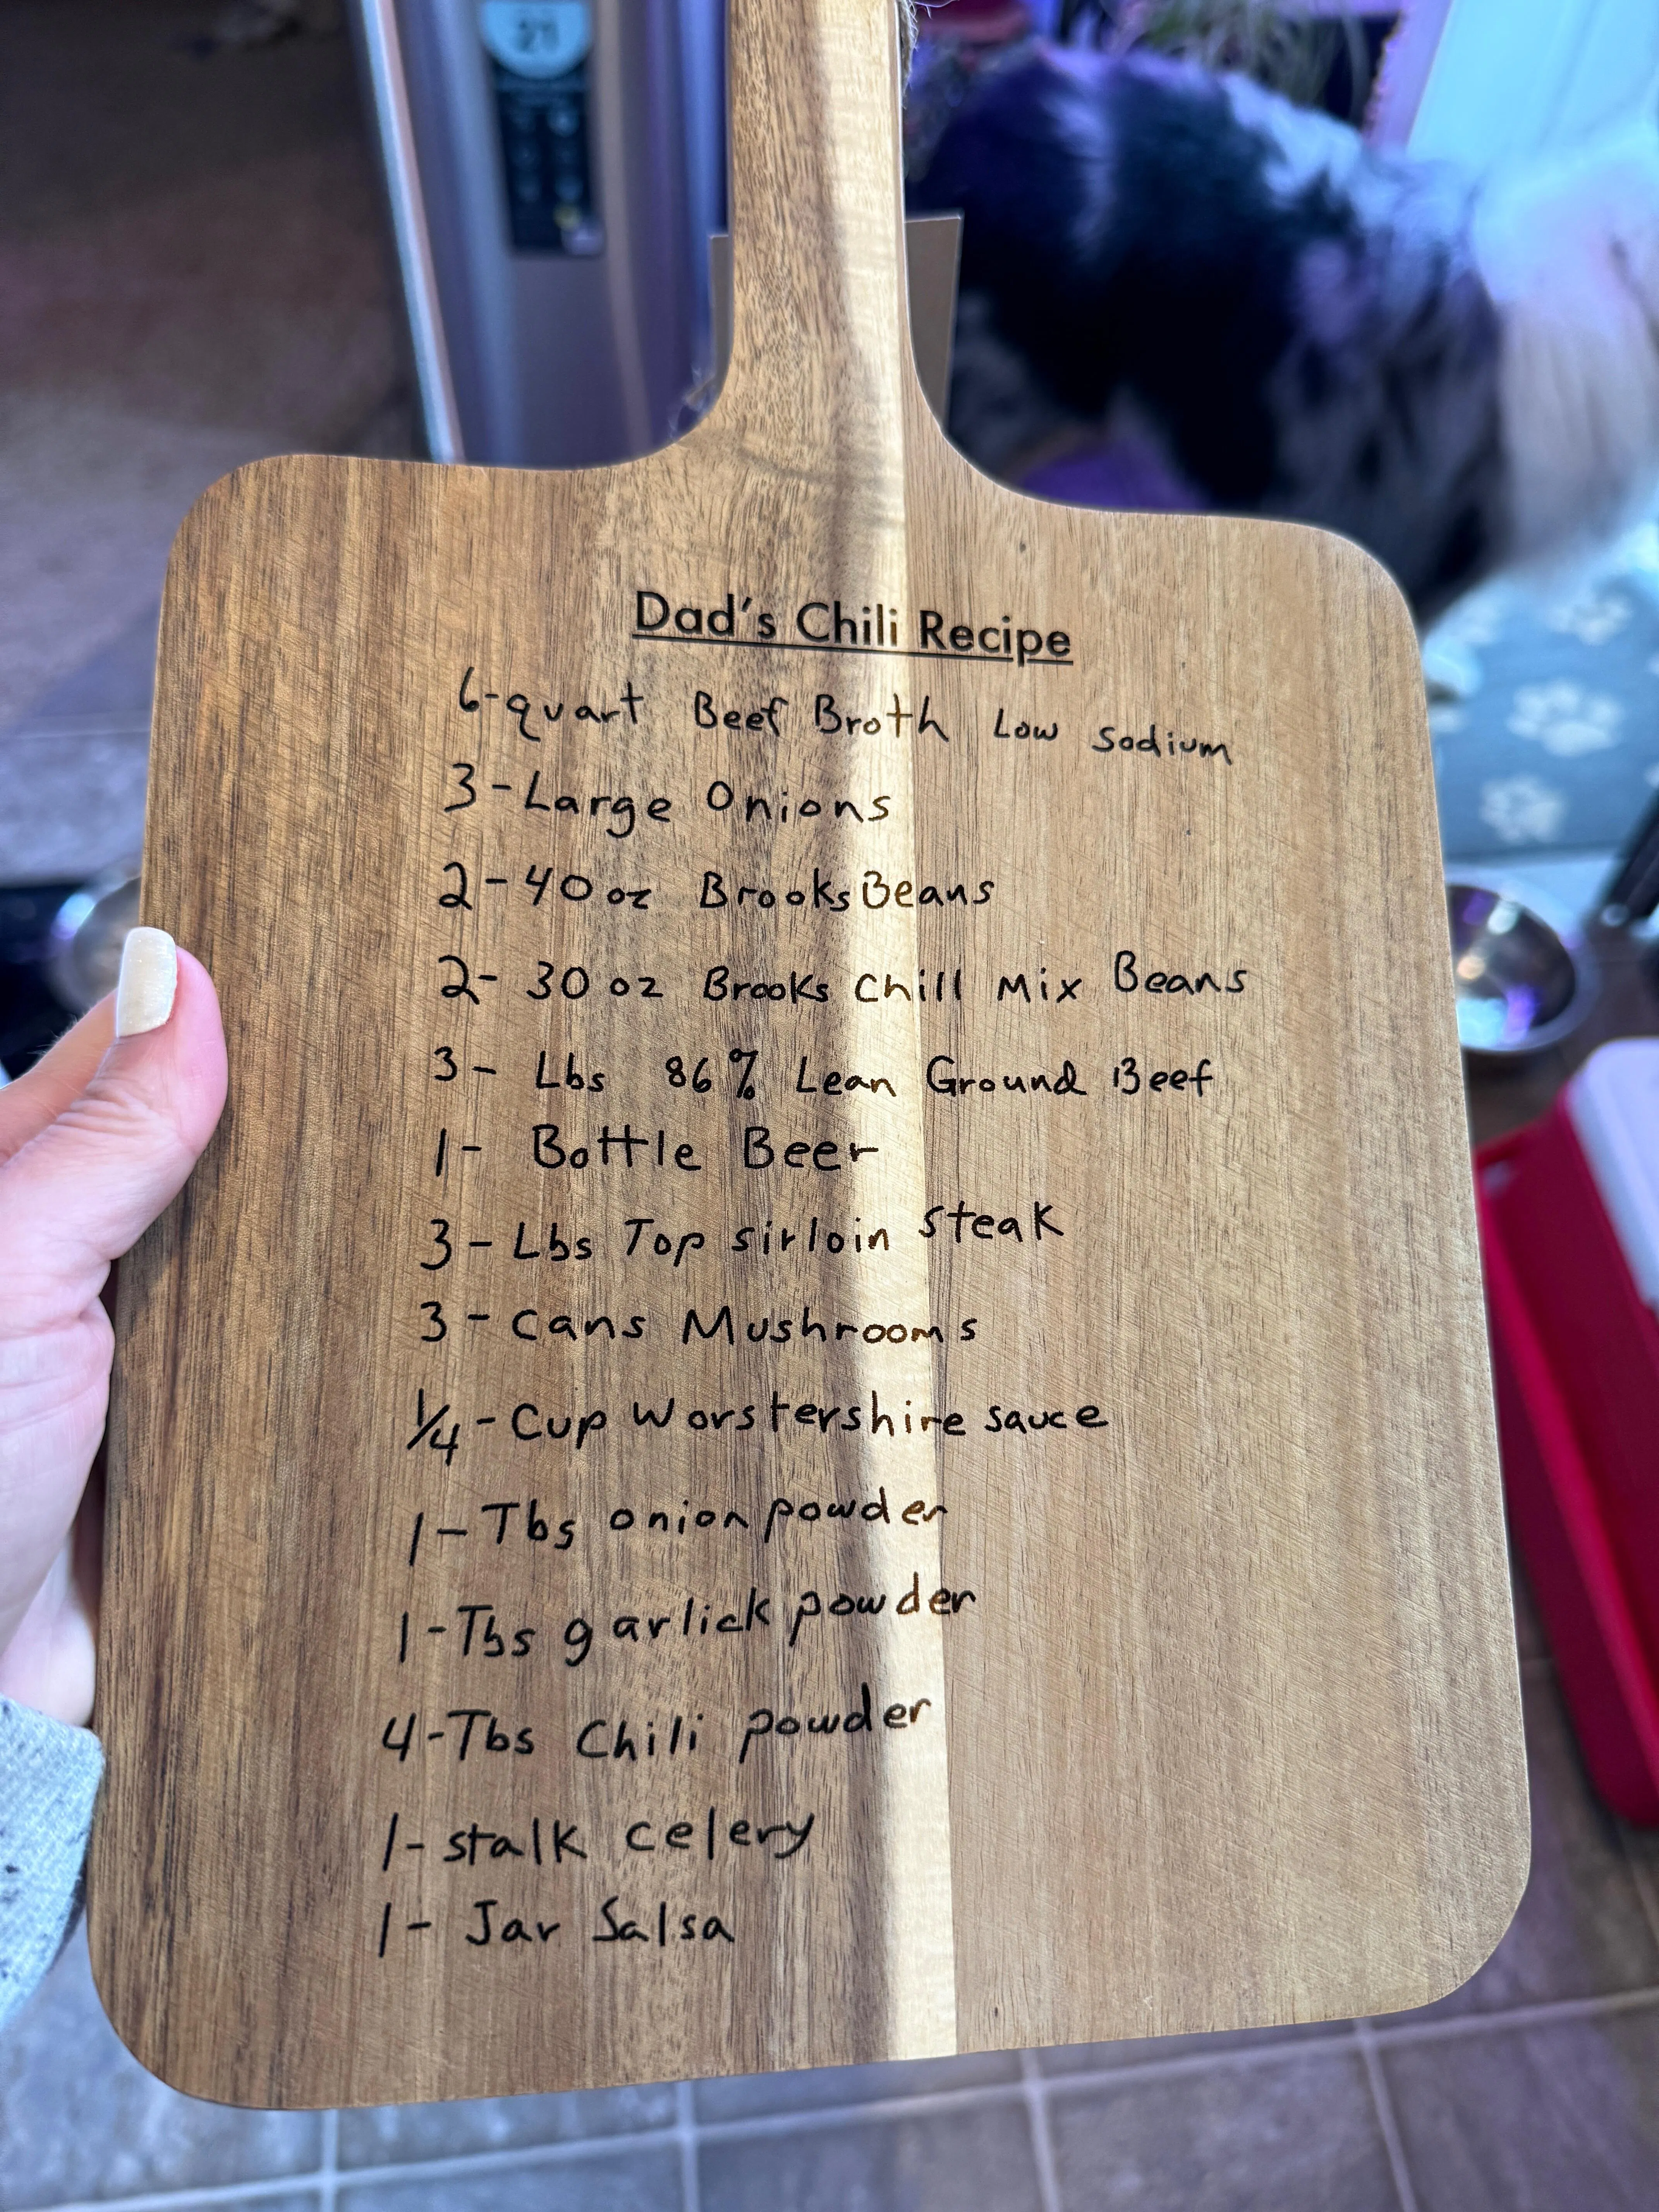 21
Dad's Chili Recipe
6-quart Beef Broth Low Sodium
3-Large Onions
2-40 oz Brooks Beans
2-30 oz Brooks Chill Mix Beans
3- Lbs 86% Lean Ground Beef
1- Bottle Beer
3-Lbs Top sirloin steak
3-Cans Mushrooms
1/4-Cup Worstershire sauce
1-Tbs onion powder
1-Tbs garlick powder
4-Tbs Chili powder
1-stalk celery
1-Jar Salsa